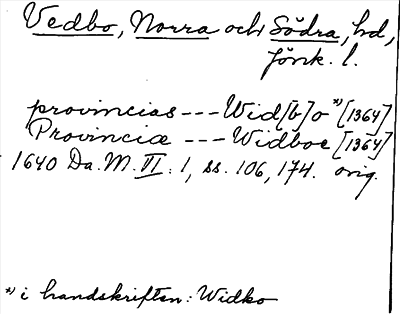 Vedbo, Norra och Södra, hd,
Jönk. l.
provincias --- Wid[b]o *) [1364]
Provinciæ --- Widboe [1364]
1640 Da. M. VI : 1, ss. 106, 174. orig.
*) i handskriften: Widko